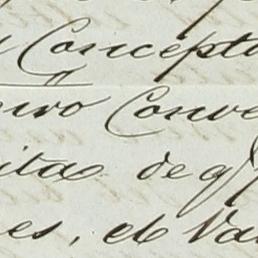 Concepto
Conve
itas de q
es, el Va